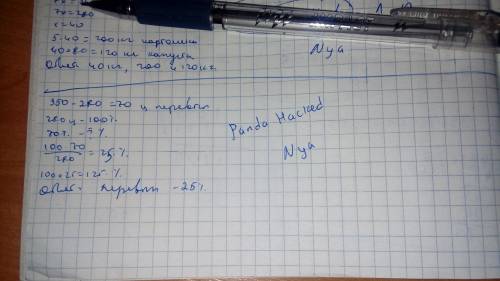 7x = 280
x = 40
5·40 = 200 кг картошки
40+80 = 120 кг капусты
Ответ 40 кг, 200 и 120 кг.
Nya
350 - 280 = 70 ц перевып
280 ц - 100%
70 - ? %
100 70 / 280 = 25%
100+25 = 125%
Ответ перевып - 25%
Panda Hacked
Nya